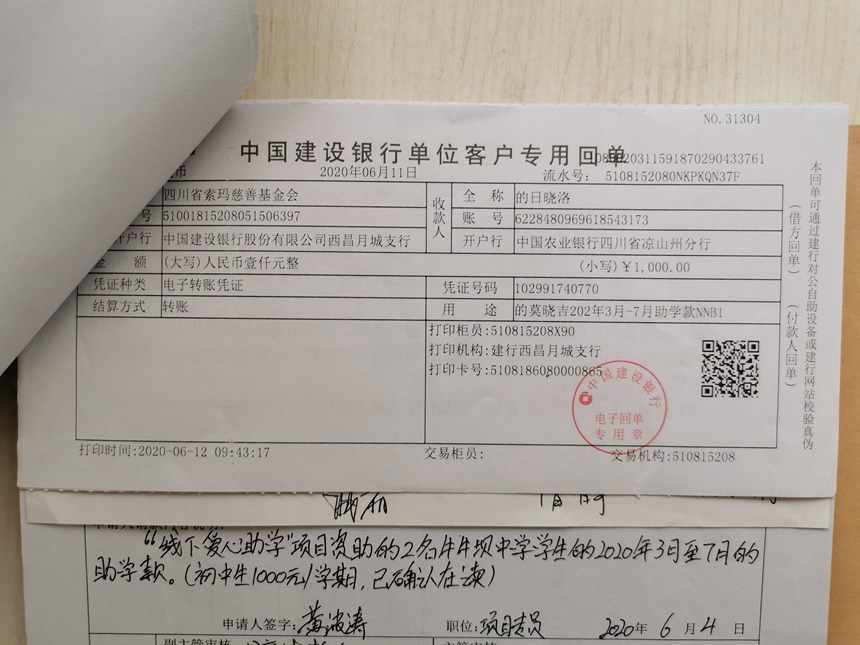 NO.31304
中国建设银行单位客户专用回单
币
2020年06月11日
流水号: 5108152080NKPKQN37F
四川省索玛慈善基金会
收款人
全 称
的日晓洛
号
51001815208051506397
账 号
6228480969618543173
开户行
中国建设银行股份有限公司西昌月城支行
开户行
中国农业银行四川省凉山州分行
金 额
(大写)人民币壹仟元整
(小写)¥1,000.00
凭证种类
电子转账凭证
凭证号码
102991740770
结算方式
转账
用 途
的莫晓吉202年3月-7月助学款NNB1
打印柜员:510815208X90
打印机构:建行西昌月城支行
打印卡号:5108186080000865
中国建设银行
电子回单
专用章
打印时间:2020-06-12 09:43:17
交易柜员:
交易机构:510815208
本回单可通过建行对公自助设备或建行网站校验真伪
(借方回单)
(付款人回单)
"线下爱心助学"项目资助的2名牛牛坝中学学生的2020年3月至7月的
助学款。(初中生1000元/学期,已确认在读)
申请人签字:
职位:项目专员
2020年 6 月 4 日